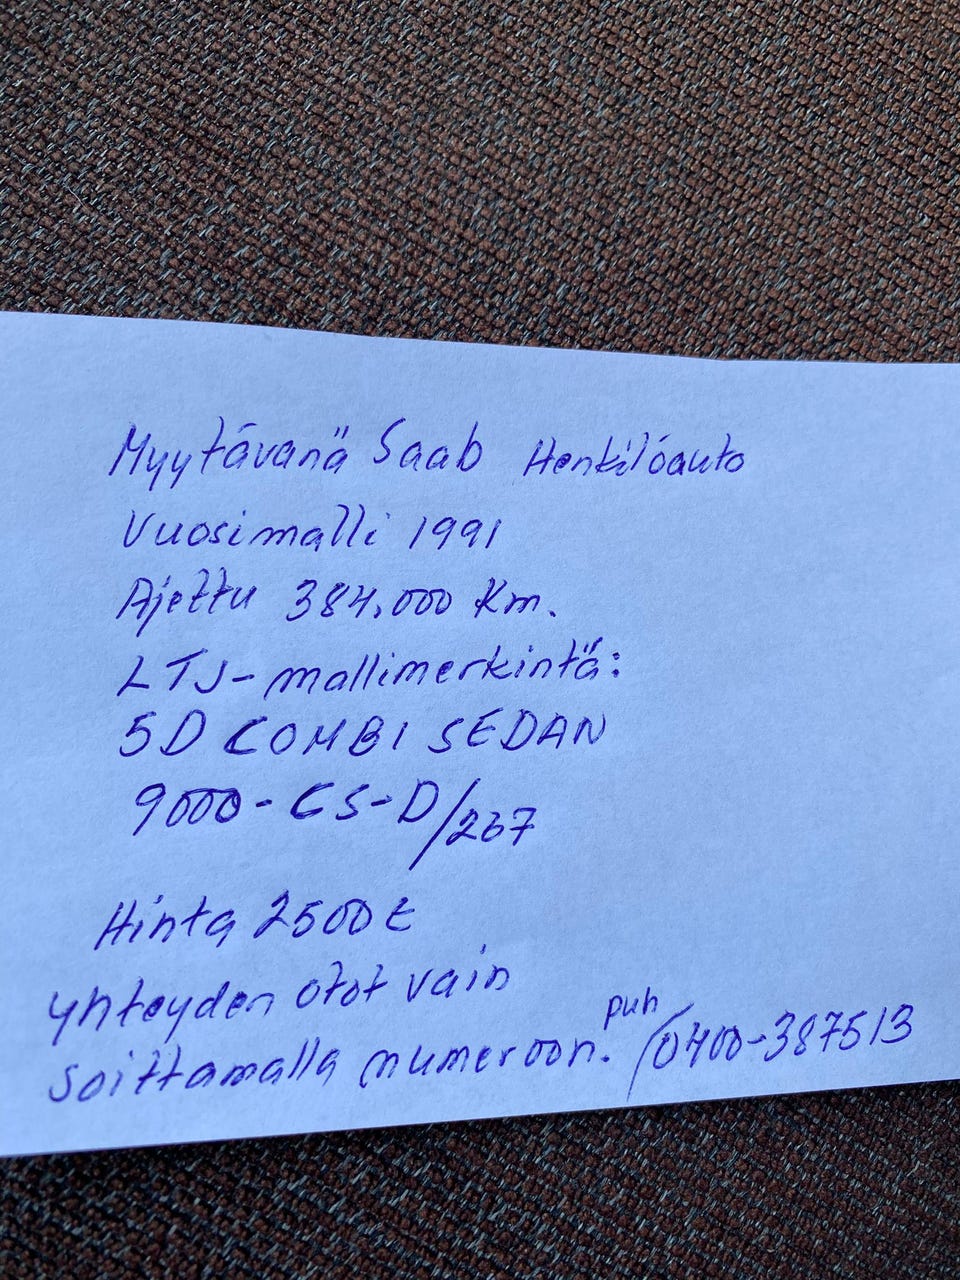 Myytävänä Saab Henkilöauto
Vuosimalli 1991
Ajettu 384.000 Km.
LTJ-mallimerkintä:
5D COMBI SEDAN
9000-CS-D/267
Hinta 2500€
yhteyden otot vain
soittamalla numeroon. puh/0400-387513